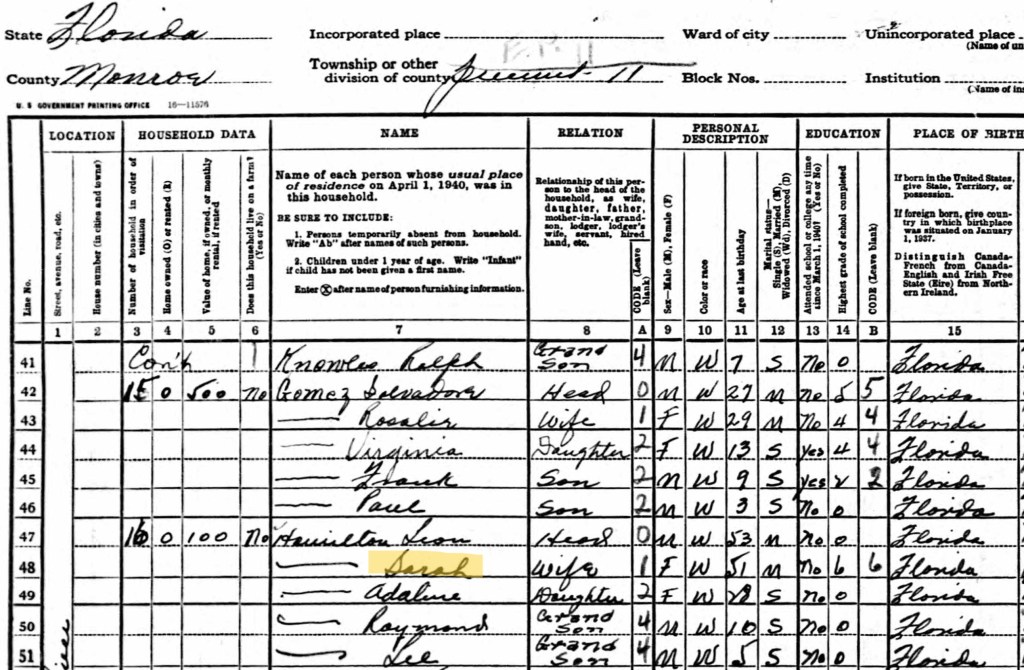 State Florida Incorporated place Ward of city Unincorporated place
(Name of un
E.D. 11
County Monroe Township or other division of county Precinct 11 Block Nos. Institution
(Name of ins
U. S GOVERNMENT PRINTING OFFICE 16—11576
LOCATION HOUSEHOLD DATA NAME RELATION PERSONAL DESCRIPTION EDUCATION PLACE OF BIRTH
Line No.
Street, avenue, road, etc.
House number (in cities and towns)
Number of household in order of visitation
Home owned (O) or rented (R)
Value of home, if owned, or monthly rental, if rented
Does this household live on a farm? (Yes or No)
Name of each person whose usual place of residence on April 1, 1940, was in this household.
BE SURE TO INCLUDE:
1. Persons temporarily absent from household. Write "Ab" after names of such persons.
2. Children under 1 year of age. Write "Infant" if child has not been given a first name.
Enter X after name of person furnishing information.
Relationship of this person to the head of the household, as wife, daughter, father, mother-in-law, grandson, lodger, lodger's wife, servant, hired hand, etc.
CODE (Leave blank)
Sex—Male (M), Female (F)
Color or race
Age at last birthday
Marital status—Single (S), Married (M), Widowed (Wd), Divorced (D)
Attended school or college any time since March 1, 1940? (Yes or No)
Highest grade of school completed
CODE (Leave blank)
If born in the United States, give State, Territory, or possession.
If foreign born, give country in which birthplace was situated on January 1, 1937.
Distinguish Canada-French from Canada-English and Irish Free State (Eire) from Northern Ireland.
1 2 3 4 5 6 7 8 A 9 10 11 12 13 14 B 15
41 Con't Knowles Ralph Grand Son 4 M W 7 S No 0 Florida
42 15 0 500 No Gomez Salvadore Head 0 M W 27 M No 5 5 Florida
43 — Rosalie Wife 1 F W 29 M No 4 4 Florida
44 — Virginia Daughter 2 F W 13 S yes 4 4 Florida
45 — Frank Son 2 M W 9 S yes 2 2 Florida
46 — Paul Son 2 M W 3 S No 0 Florida
47 16 0 100 No Hamilton Leon Head 0 M W 53 M No 0 Florida
48 — Sarah Wife 1 F W 51 M No 6 6 Florida
49 — Adaline Daughter 2 F W S No 0 Florida
50 — Raymond Grand Son 4 M W 10 S No 0 Florida
51 — Lee Grand Son 4 M W 5 S No 0 Florida